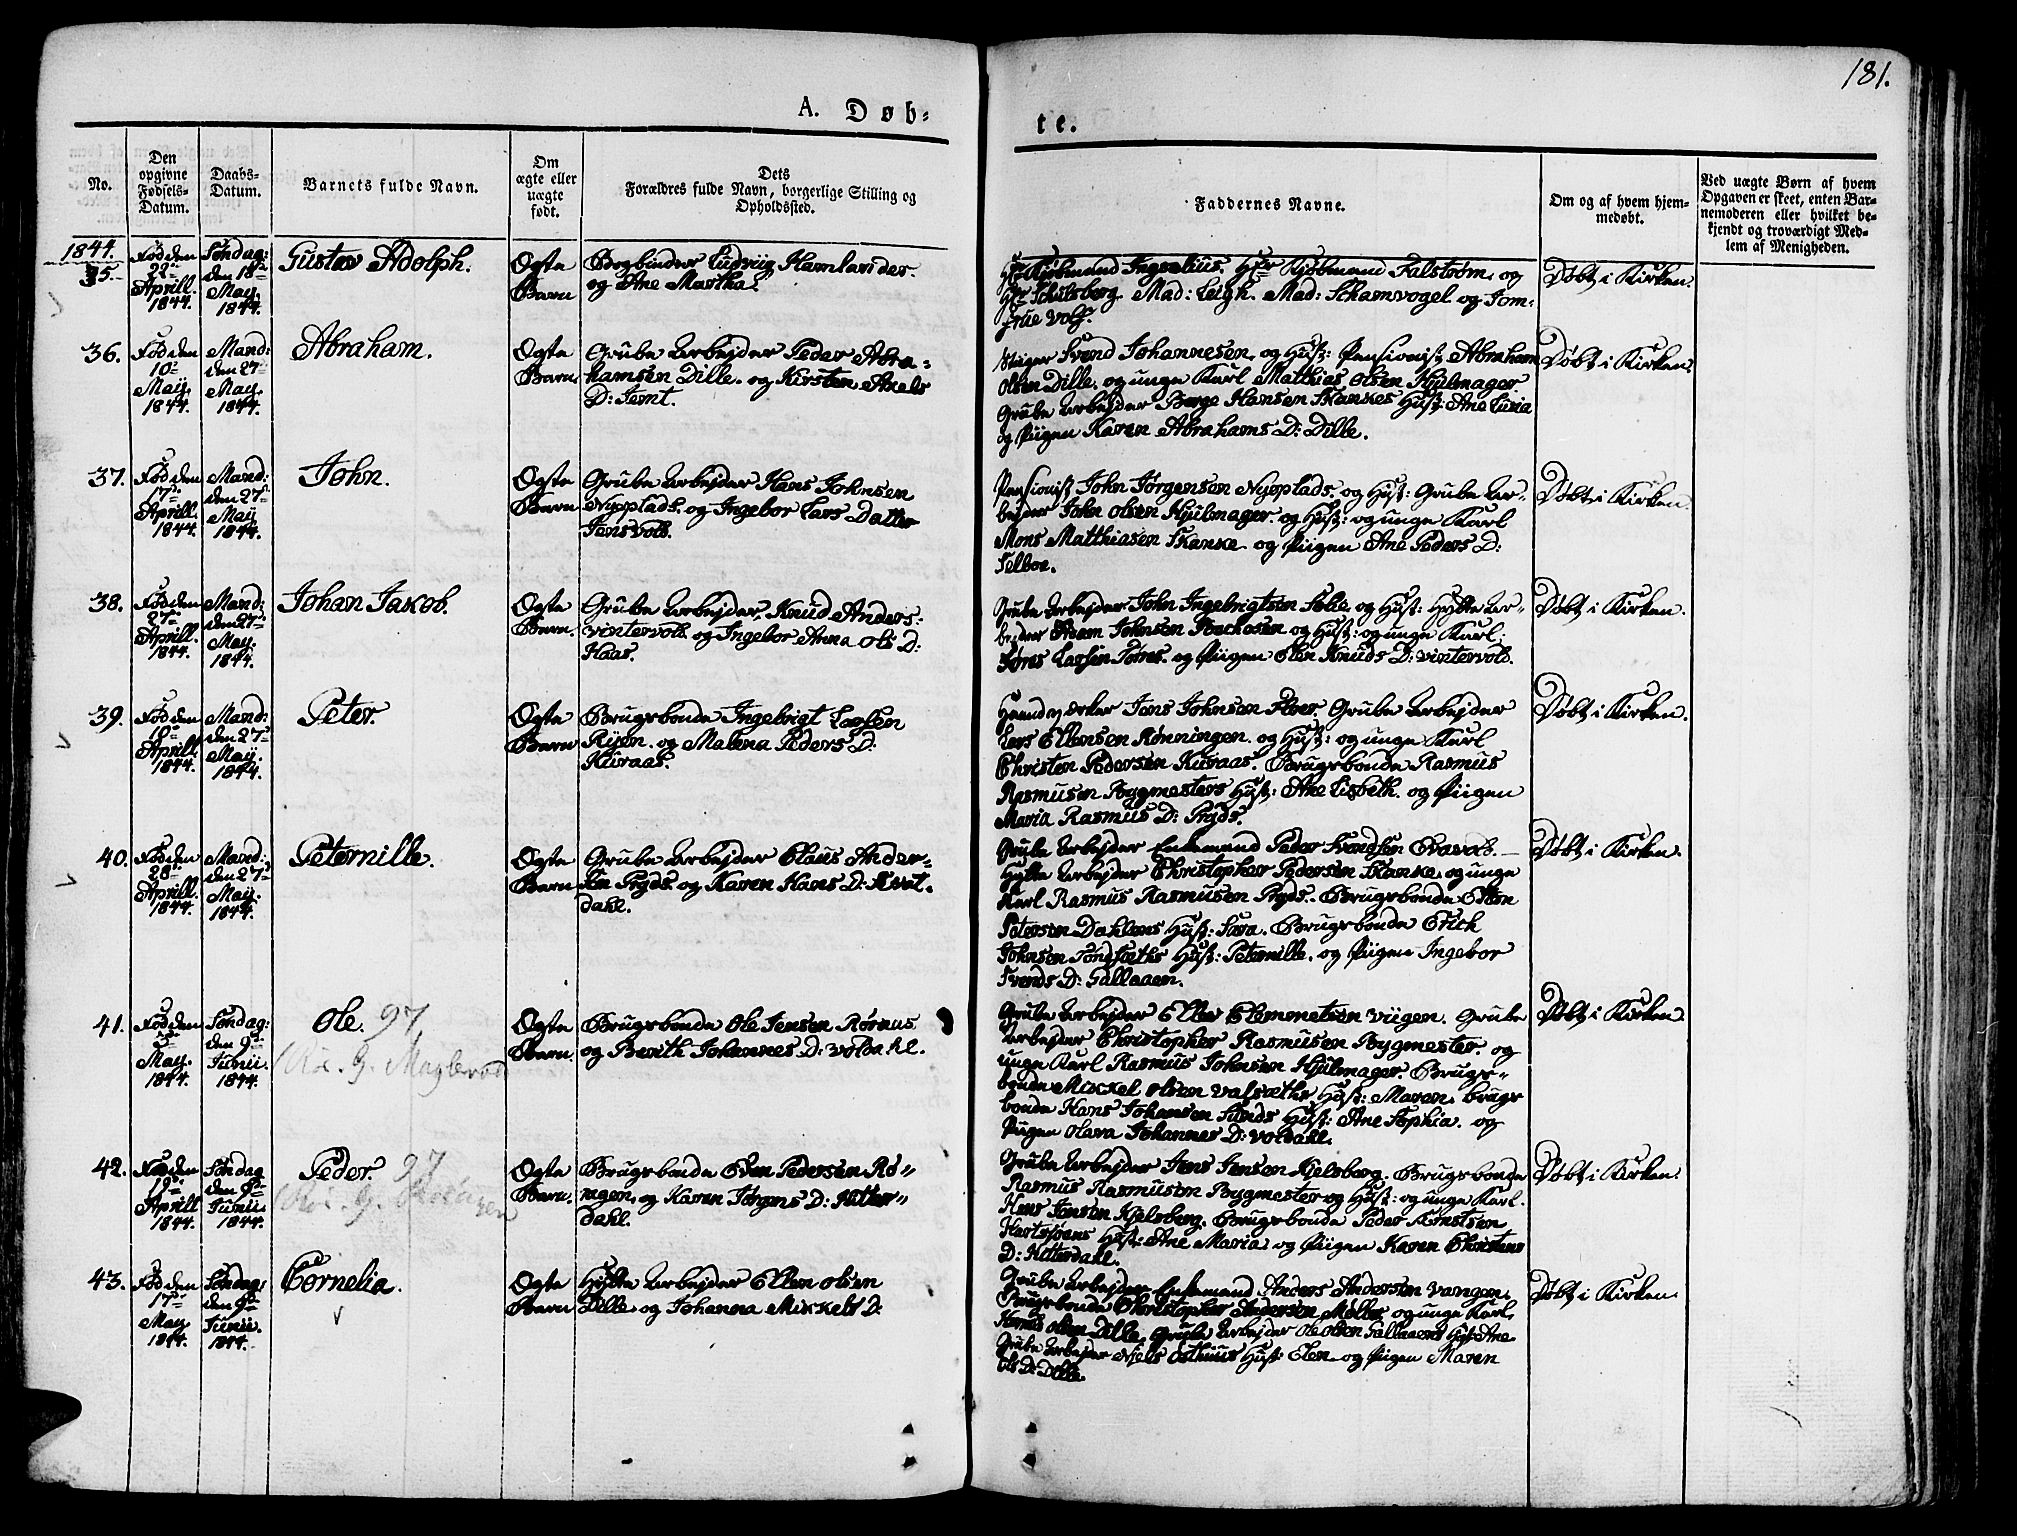 181.
A. Døb-
te.
No.
Den
opgivne
Fødsels-
Datum.
Daabs-
Datum.
Barnets fulde Navn.
Om
ægte eller
uægte
født.
Dets
Forældres fulde Navn, borgerlige Stilling og
Opholdssted.
Faddernes Navne.
Om og af hvem hjem-
medøbt.
Ved uægte Børn af hvem
Opgaven er skeet, enten Bar-
nemoderen eller hvilket be-
kjendt og troværdigt Med-
lem af Menigheden.
1844.
35.
Fød den
Aprill.
1844.
Søndag:
den 18de
May.
1844.
Gustav Adolph.
Ægte
Barn
Bogbinder Ludvig Hamlander.
og Ane Martha.
Hr Kjøbmand Ingselius. Hr Kjøbmand Falstrøm, og
Hr Schulsberg. Mad: Leigh. Mad: Schamvogel og Jom-
frue Volf.
Døbt i Kirken.
36.
Fød den
10de
May.
1844.
Mand:
den 27de
May.
1844.
Abraham.
Ægte
Barn
Grube Arbejder Peder Abra-
hamsen Dille. og Kirsten Axels
D: Jemt.
Stiger Svend Johannesen, og Hust: Pensionist Abraham
Olsen Dille. og unge Karl Matthias Olsen Hjulmager.
Grube Arbejder Borge Hansen Skankes Hust: Ane Lusia
og Piigen Karen Abrahams D: Dille.
Døbt i Kirken.
37.
Fød den
17de
Aprill.
1844.
Mand:
den 27de
May
1844.
John.
Ægte
Barn
Grube Arbejder Hans Johnsen
Nyplads. og Ingebor Lars Datter
Jensvold.
Pensionist John Jørgensen Nyplads. og Hust: Grube Ar-
bejder John Olsen Hjulmager. og Hust: og unge Karl
Mons Matthiasen Skanke og Piigen Ane Peders D:
Selboe.
Døbt i Kirken.
38.
Fød den
27de
Aprill.
1844.
Mand:
den 27de
May.
1844.
Johan Jakob.
Ægte
Barn.
Grube Arbejder, Knud Anders:
Vintervold og Ingebor Anna Ols D:
Haas.
Grube Arbejder John Ingebrigtsen og Hust: Hytte Ar-
bejder Johnsen og Hust: og unge Karl.
Larsen og Piigen Elen Knuds D: Vintervold.
Døbt i Kirken.
39.
Fød den
10de
Aprill.
1844.
Mand:
den 27de
May.
1844.
Peter.
Ægte
Barn
Brugsbonde Ingebrigt Larsen
Ryen. og Malena Peders D:
Kuraas.
Haandværker Jens Johnsen Floer. Grube Arbejder
Lars Ellensen Rønningen. og Hust: og unge Karl
Christen Pedersen Kuraas. Brugsbonde Rasmus
Rasmusen Bygmesters Hust: Ane Lisbeth. og Piigen
Maria Rasmus D: Pryds.
Døbt i Kirken.
40.
Fød den
28de
Aprill.
1844.
Mand:
den 27de
May.
1844.
Peternille.
Ægte
Barn
Grube Arbejder Claus Ander-
sen Pryds. og Karen Hans D: Kvat-
dahl.
Grube Arbejder Enkemand Peder Svendsen
Hytte Arbejder Christopher Pedersen Skanke, og unge
Karl Rasmus Rasmusen Pryds. Brugsbonde
Petersen Dahlens Hust: Sara. Brugsbonde Erich
Johnsen Hust: Peternille. og Piigen Ingebor
Svends D: Gallaaen.
Døbt i Kirken.
41.
Fød den
5de
May.
1844.
Søndag:
den 9de
Junii.
1844.
Ole. 97.
Ægte
Barn.
Brugsbonde Ole Jensen Rørnus
og Berith Johannes D: Voldahl.
Grube Arbejder Eller Clemmetsen Viigen. Grube
Arbejder Christopher Rasmusen Bygmester. og
unge Karl Rasmus Johnsen Hjulmager. Brugs-
bonde Mikkel Olsen Hust: Maren. brugs
bonde Hans Johansen Sunds Hust: Ane Sophia. og
Piigen Olava Johannes D: Voldahl.
Døbt i Kirken.
42.
Fød den
19de
Aprill
1844.
Søndag
den 9de
Junii.
1844.
Peder. 97
Ægte
Barn.
Brugsbonde Even Pedersen Rø-
ragen, og Karen Jørgens D: Hitter-
dahl.
Grube Arbejder Jens Jensen Kjelsberg. Brugsbonde
Rasmus Rasmusen Bygmester og Hust: og unge Karl
Hans Jensen Kjelsberg. Brugsbonde Peder
Hust: Ane Maria. og Piigen Karen Christens
D: Hitterdahl.
Døbt i Kirken.
43.
Fød den
17de
May.
1844.
Søndag:
den 9de
Junii.
1844.
Cornelia.
Ægte
Barn.
Hytte Arbejder Ellen Olsen
Dille og Johanna Mikkels D:
Grube Arbejder Enkemand Anders Andersen Vangen.
Brugsbonde Christopher Andersen og unge Karl
Olsen Dille. Grube Arbejder Ole Olsen Gallaaens Hust: Ane
Grube Arbejder Niels Hust: Elen og Piigen Maren
Ols D: Dille.
Døbt i Kirken.